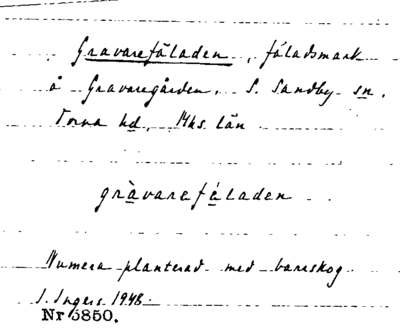 Gravarefäladen, fäladsmark
å Gravaregården, S. Sandby sn.
Torna hd, Mhs län
gràvareféladen
Numera planterad med barrskog
I. Ingers 1948.
Nr 5850.